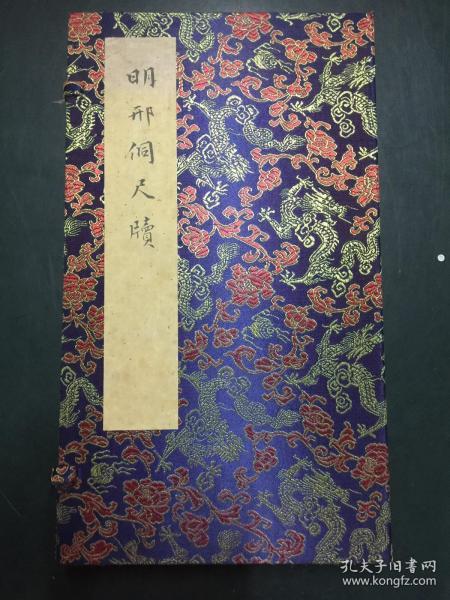 明邢侗尺牍
孔夫子旧书网
www.kongfz.com